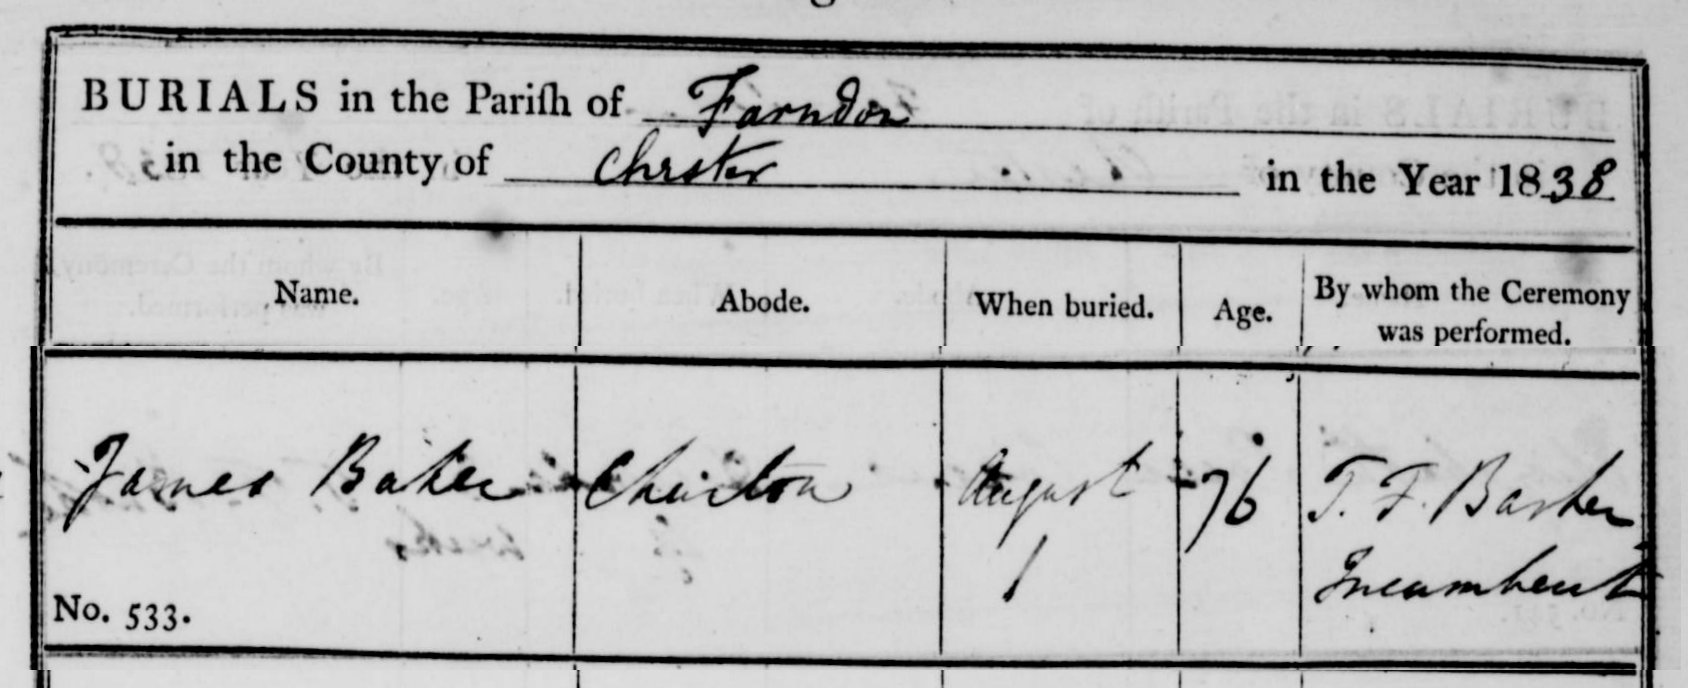 BURIALS in the Pariſh of Farndon
in the County of Chester in the Year 1838
Name. Abode. When buried. Age. By whom the Ceremony was performed.
James Baker Churton August 1 76 T. F. Barker Incumbent
No. 533.